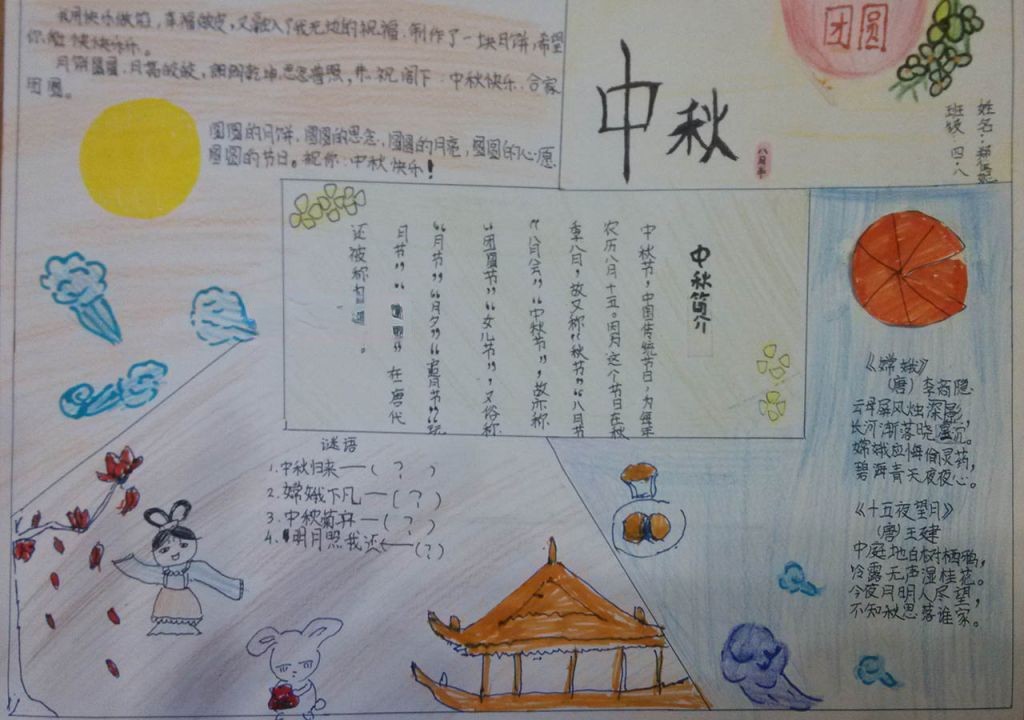 用快乐做馅，幸福做皮，又融入了我无边的祝福，制作了一块月饼，希望
你能快快乐乐。
月饼圆圆，月亮皎皎，朗朗乾坤，思念普照，恭祝阁下：中秋快乐，合家
团圆。
圆圆的月饼，圆圆的思念，圆圆的月亮，圆圆的心愿
圆圆的节日。祝你：中秋快乐！
团圆
中秋
八月半
姓名：
班级 四·八
中秋简介
中秋节，中国传统节日，为每年
农历八月十五。因为这个节日在秋
季八月，故又称“秋节”“八月节
“八月会”“中秋节”，故亦称
“团圆节”“女儿节”，又俗称
“月节”“月夕”“追月节”“玩
月节” 在唐代
还被称
谜语
1.中秋归来——（ ？ ）
2.嫦娥下凡——（？）
3.中秋菊开——（ ？ ）
4.明月照我还——（？）
《嫦娥》
（唐）李商隐
云母屏风烛深影，
长河渐落晓星沉。
嫦娥应悔偷灵药，
碧海青天夜夜心。
《十五夜望月》
（唐）王建
中庭地白树栖鸦，
冷露无声湿桂花。
今夜月明人尽望，
不知秋思落谁家。